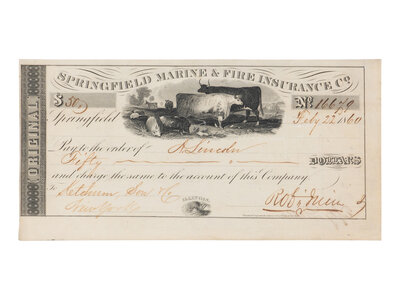 SPRINGFIELD MARINE & FIRE INSURANCE Co.
ORIGINAL
$ 50
Springfield Feby 22 1860
Pay to the order of A. Lincoln
Fifty DOLLARS
and charge the same to the account of this Company.
To Ketchum Son &Co
New York